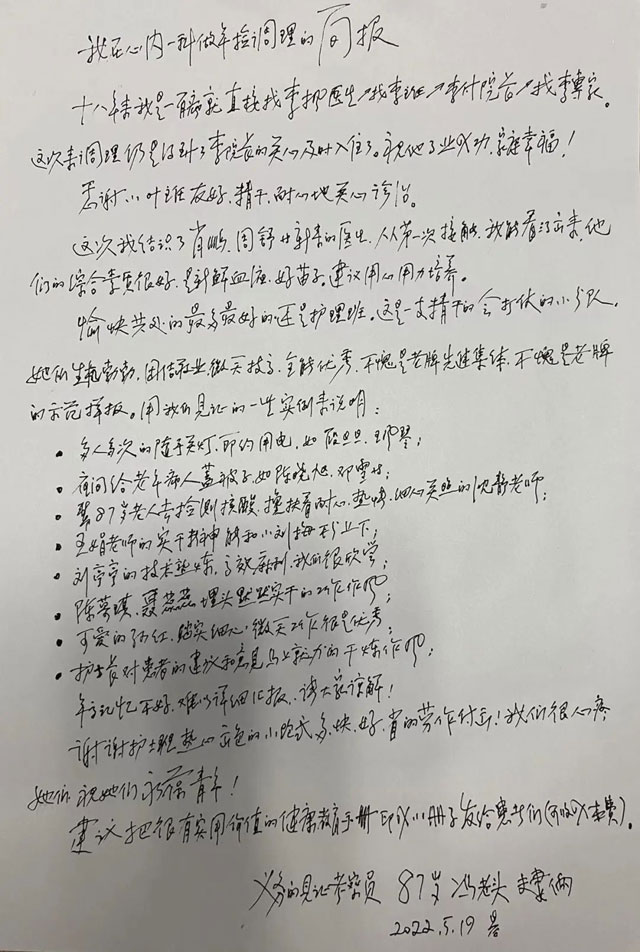 我在心内一科做年检调理的简报
十八年春我是一有病就直接找李挪医生↗找李班↗李付院长↗找李专家。
这次来调理仍是得到了李院长的关心及时入住了。祝他事业成功、家庭幸福！
感谢小叶班友好、精干、耐心地关心诊治。
这次我结识了肖鹏、周舒 新来的医生，人人第一次接触，我能看得出来，他
们的综合素质很好，是新鲜血液、好苗子，建议用心用力培养。
愉快共处的最多最好的还是护理班。这是一支精干的会打仗的小分队，
她们生气勃勃、团结敬业、微笑技高、全能优秀，不愧是老牌先进集体，不愧是老牌
的示范样板。用我们见证的一些实例来说明：
• 多人多次的随手关灯，即节约用电，如段旦旦、王 琴；
• 夜间给老年病人盖被子，如陈晓旭、邓雪 ；
• 帮87岁老人去检测核酸，搀扶着耐心、热情、细心关照的沈静老师；
• 王娟老师的实干精神 和小刘梅 下；
• 刘亭亭的技术熟练、高效麻利，我们很欣赏；
• 陈梦琪、聂蕊蕊埋头默默实干的工作作风；
• 可爱的孙红，踏实细心，微笑工作很是优秀；
• 护士长对患者的建议和意见马上就办的干炼作风；
年高记忆不好，难以详细汇报，请大家谅解！
谢谢护士班热心出色的小跑式多、快、好、省的劳作付出！我们很心疼
她们 祝她们永葆青年！
建议把很有实用价值的健康教育手册印成小册子发给患者们(可收成本费)。
义务的见证考察员 87岁 冯老头 夫妻俩
2022.5.19